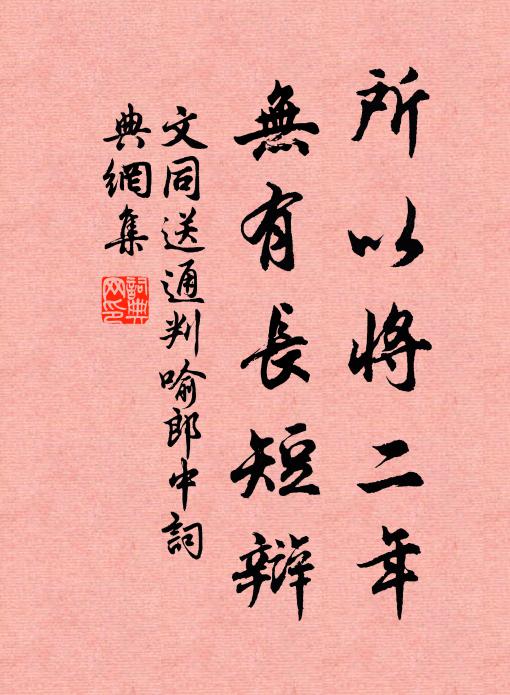 所以將二年
無有長短辯
文同送通判喻郎中詞
典網集
詞典网印